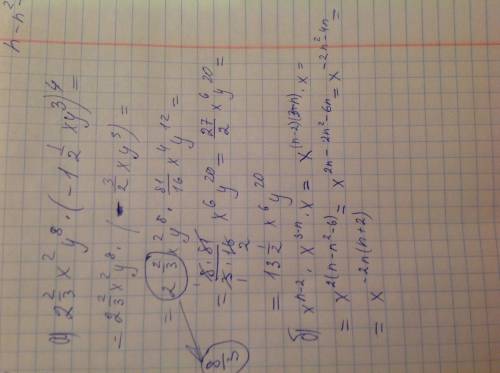 n-n²
а) 2 2/3 x² y⁸ · (-1 1/2 xy³)⁴ =
= 2 2/3 x² y⁸ · (-3/2 xy³) =
= 2 2/3 x² y⁸ · 81/16 x⁴ y¹² =
8/3
= 8·81/3·16 2 x⁶ y²⁰ = 27/2 x⁶ y²⁰ =
= 13 1/2 x⁶ y²⁰
б) xⁿ⁻² · x³⁺ⁿ · x = x⁽ⁿ⁻²⁾⁽³⁺ⁿ⁾ · x =
= x²⁽ⁿ⁻ⁿ²⁻⁶⁾ = x²ⁿ⁻²ⁿ²⁻⁶ⁿ = x⁻²ⁿ²⁻⁴ⁿ =
= x⁻²ⁿ⁽ⁿ⁺²⁾